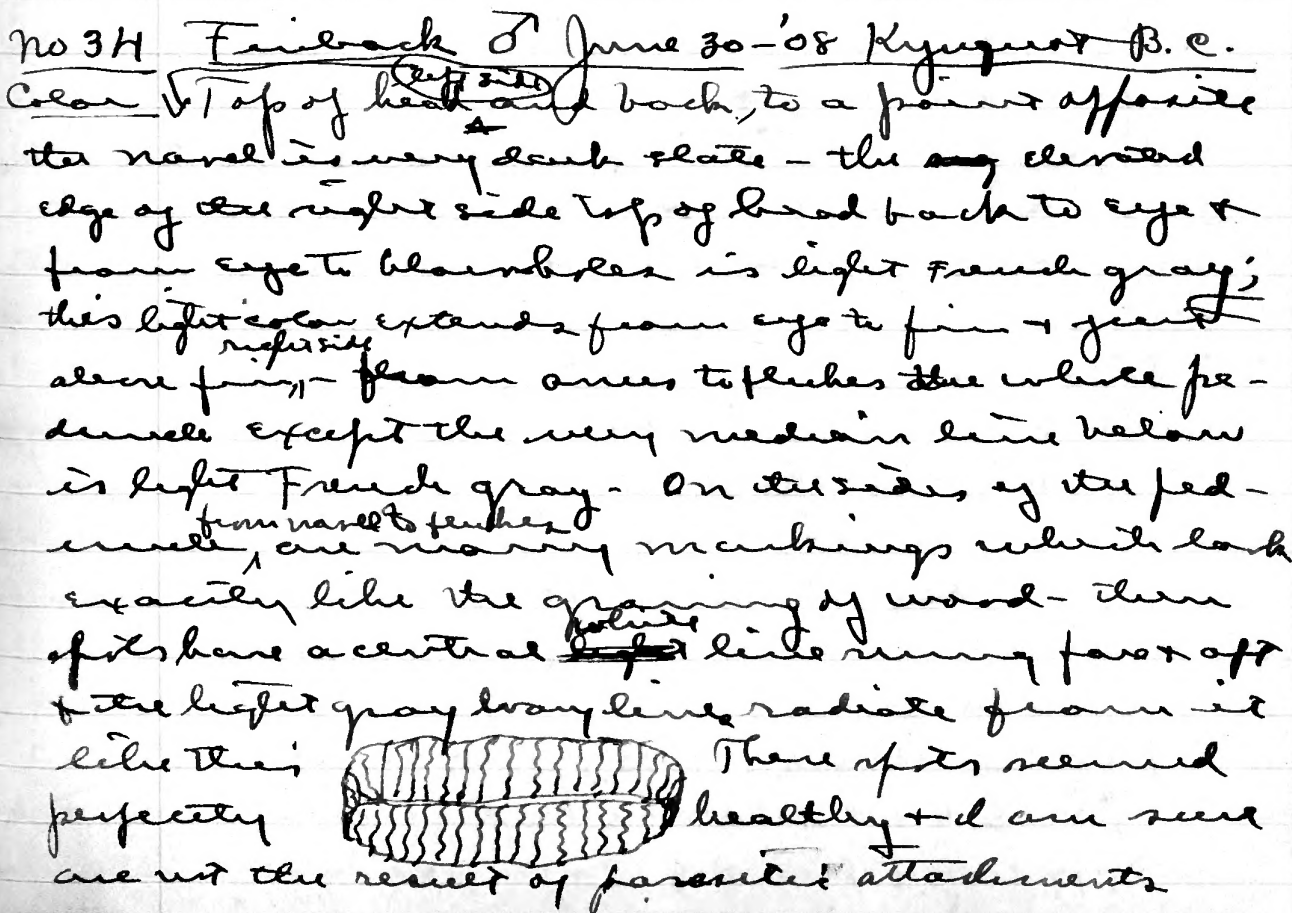 No 34 Finback ♂ June 30-'08 Kyuquot B.C.
Color Top of head (left side) and back, to a point opposite
the navel is very dark slate - the elevated
edge of the right side top of head back to eye &
from eye to blowholes is light French gray;
this light color extends from eye to fin & just
above fin, right side - from anus to flukes the whole pe-
duncle except the very median line below
is light French gray - On the sides of the ped-
uncle, from navel to flukes are many markings which look
exactly like the graining of wood - these
spots have a central white line running fore & aft
& the light gray wavy lines radiate from it
like this These spots seemed
perfectly healthy & I am sure
are not the result of parasitic attachments